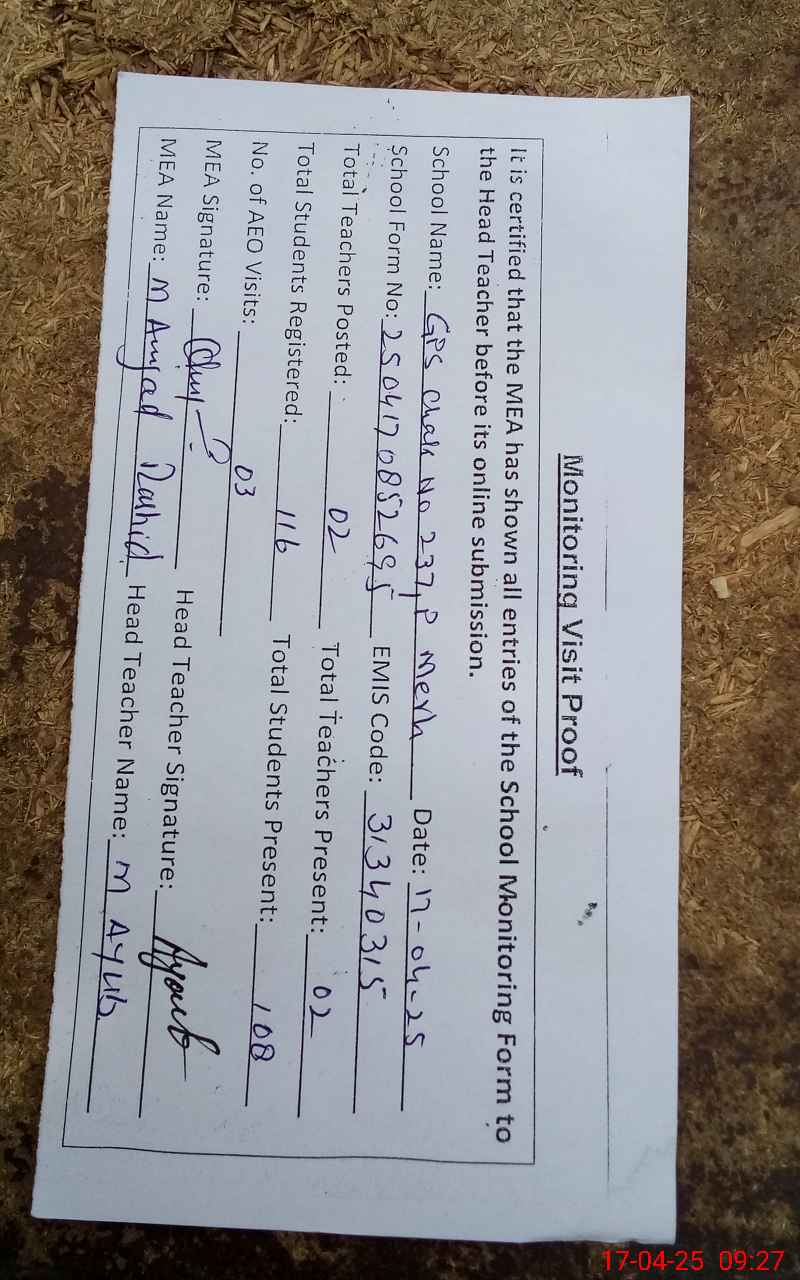 Monitoring Visit Proof
It is certified that the MEA has shown all entries of the School Monitoring Form to
the Head Teacher before its online submission.
School Name: GPS Chak No 237, P Merh Date: 17-04-25
School Form No: 2504170852695 EMIS Code: 31340315
Total Teachers Posted: 02 Total Teachers Present: 02
Total Students Registered: 116 Total Students Present: 108
No. of AEO Visits: 03
MEA Signature: Head Teacher Signature: Ayoub
MEA Name: M Amjad Rashid Head Teacher Name: M Ayub
17-04-25 09:27